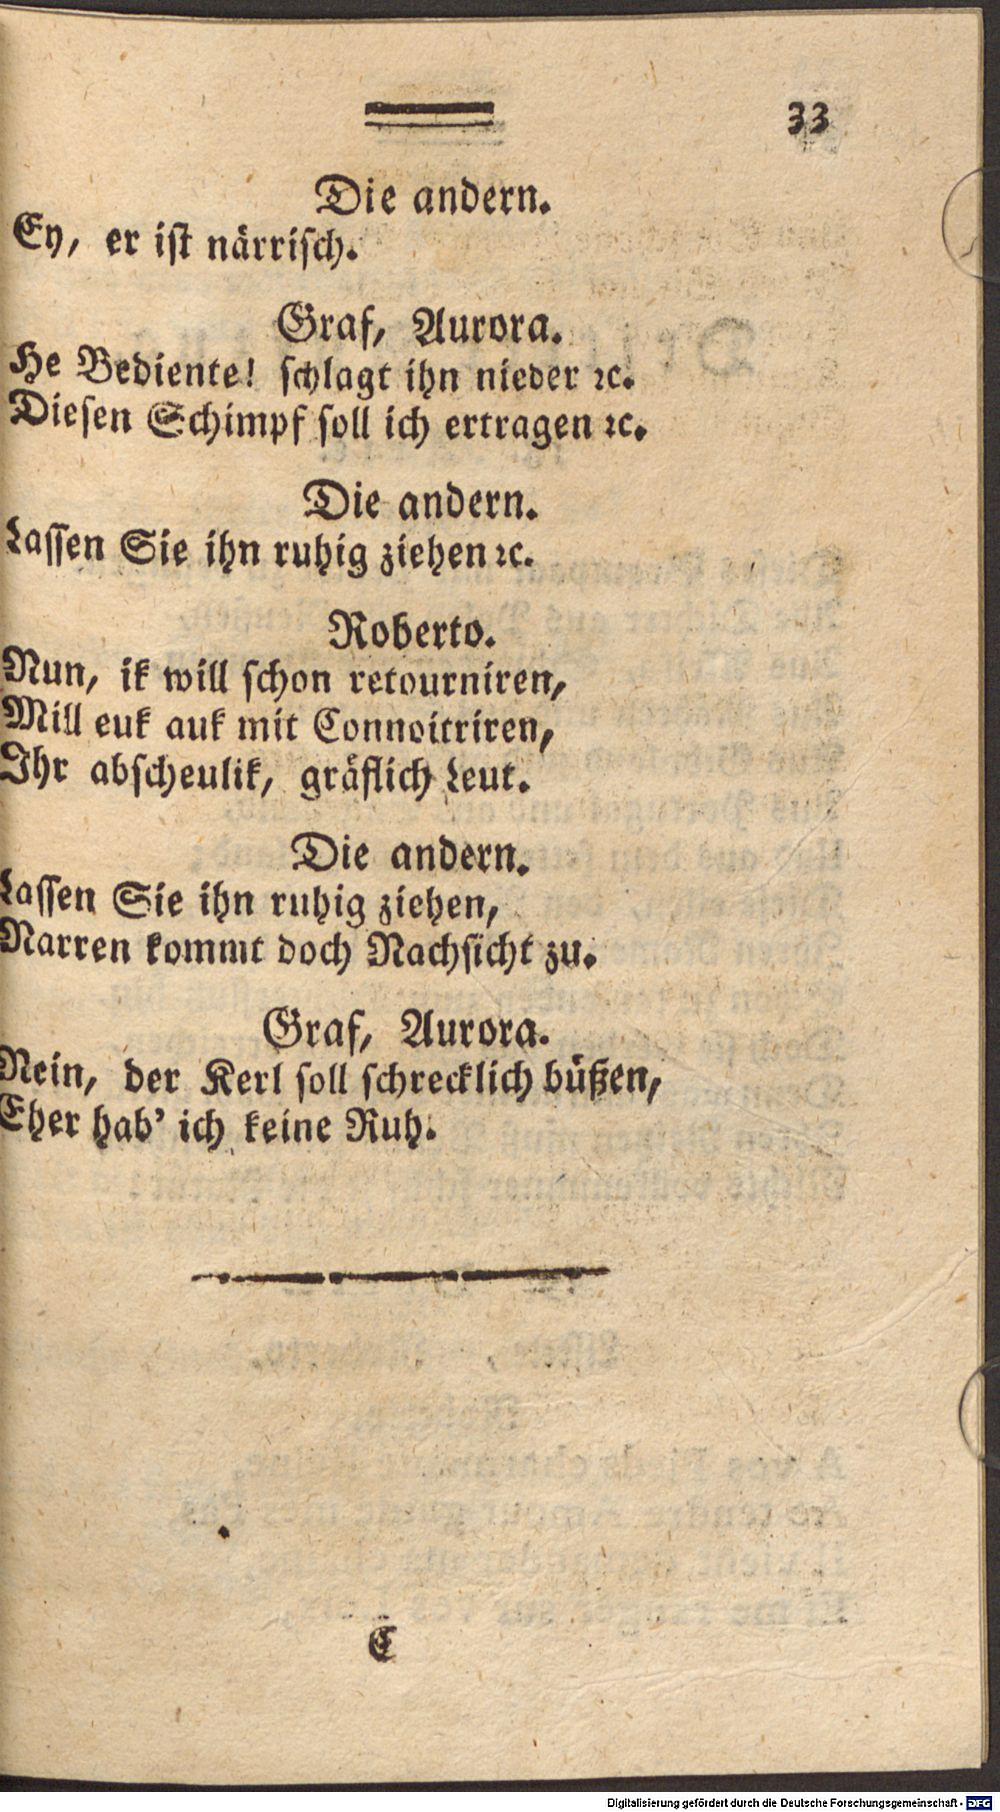 33
Die andern.
Ey, er ist närrisch.
Graf, Aurora.
He Bediente! schlagt ihn nieder ꝛc.
Diesen Schimpf soll ich ertragen ꝛc.
Die andern.
Lassen Sie ihn ruhig ziehen ꝛc.
Roberto.
Nun, ik will schon retourniren,
Mill euk auk mit Connoitriren,
Ihr abscheulik, gräflich Leut.
Die andern.
Lassen Sie ihn ruhig ziehen,
Narren kommt doch Nachsicht zu.
Graf, Aurora.
Nein, der Kerl soll schrecklich büßen,
Eher hab' ich keine Ruh.
C
Digitalisierung gefördert durch die Deutsche Forschungsgemeinschaft - DFG